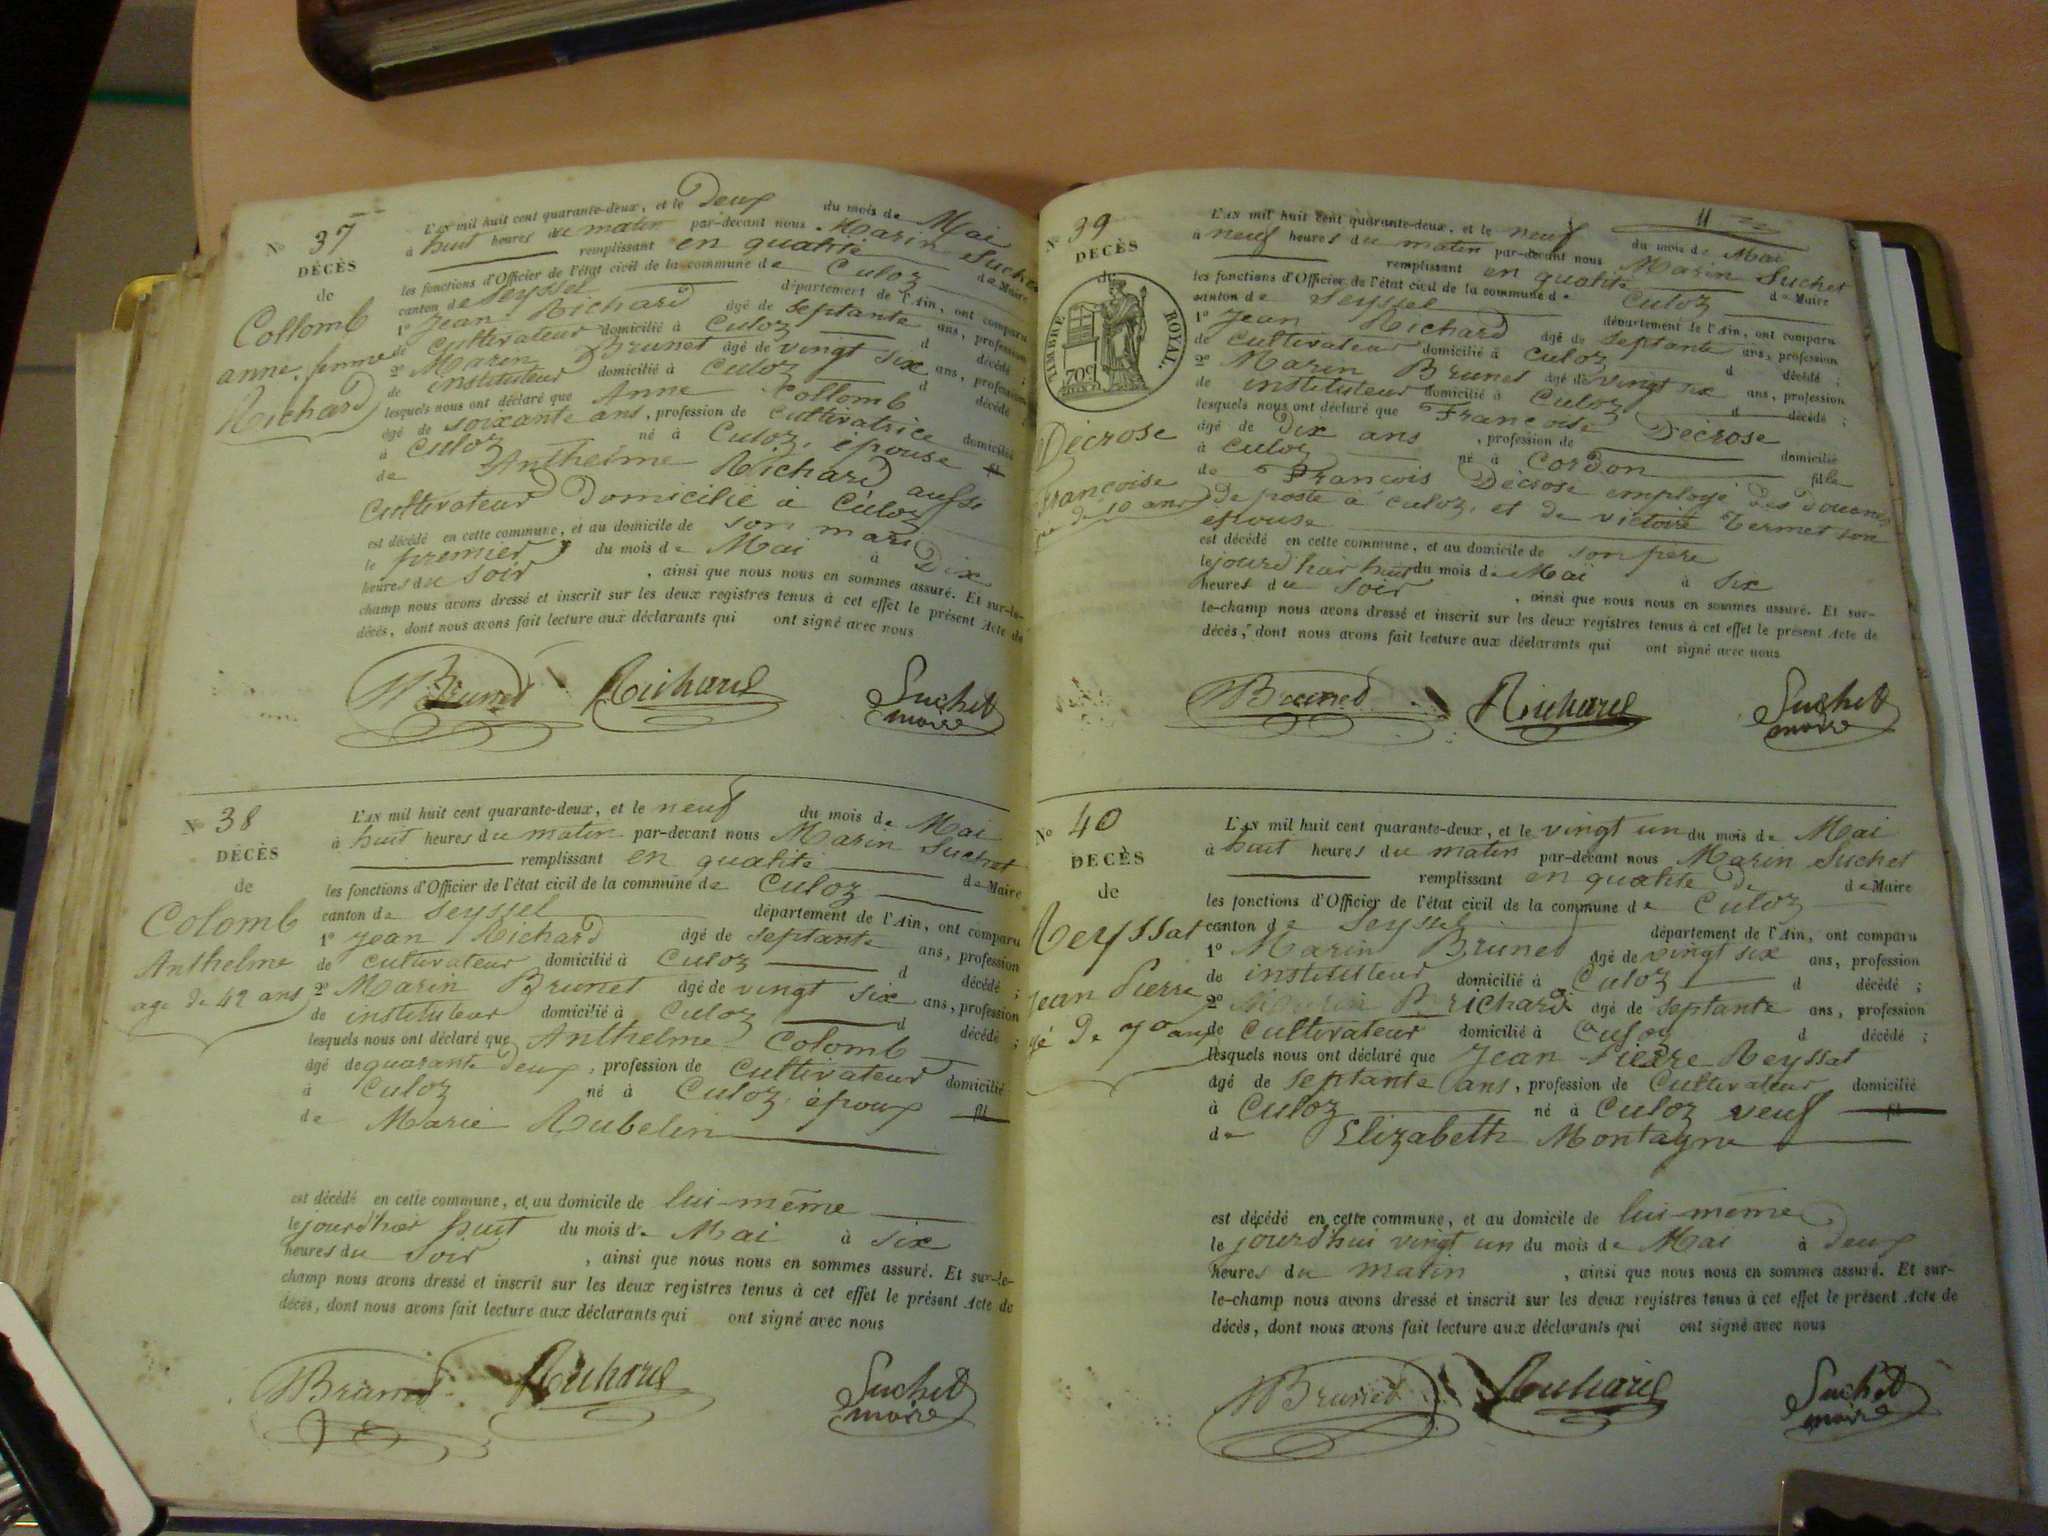 N° 37
DÉCÈS
de
Collomb
anne, femme
Richard
L'AN mil huit cent quarante-deux, et le Deux du mois de Mai
à huit heures du matin par-devant nous Marin Suchet
remplissant en qualité de Maire
les fonctions d'Officier de l'état civil de la commune de Culoz
canton de Seyssel département de l'Ain, ont comparu
1° Jean Richard âgé de septante ans, profession
de Cultivateur domicilié à Culoz d décédé ;
2° Marin Brunet âgé de vingt six ans, profession
de instituteur domicilié à Culoz d décédé ;
lesquels nous ont déclaré que Anne Collomb
âgé de soixante ans, profession de Cultivatrice domicilié
à Culoz né à Culoz, épouse fil
de Anthelme Richard aussi
Cultivateur Domicilié à Culoz
est décédé en cette commune, et au domicile de son mari
le premier du mois de Mai à Dix
heures du soir , ainsi que nous nous en sommes assuré. Et sur-le-
champ nous avons dressé et inscrit sur les deux registres tenus à cet effet le présent Acte de
décès, dont nous avons fait lecture aux déclarants qui ont signé avec nous
MBrunet Richard Suchet
maire
N° 38
DÉCÈS
de
Colomb
Anthelme
age de 42 ans
L'AN mil huit cent quarante-deux, et le neuf du mois de Mai
à huit heures du matin par-devant nous Marin Suchet
remplissant en qualité de Maire
les fonctions d'Officier de l'état civil de la commune de Culoz
canton de Seyssel département de l'Ain, ont comparu
1° Jean Richard âgé de septante ans, profession
de cultivateur domicilié à Culoz d décédé ;
2° Marin Brunet âgé de vingt six ans, profession
de instituteur domicilié à Culoz d décédé ;
lesquels nous ont déclaré que Anthelme Colomb
âgé de quarante deux, profession de Cultivateur domicilié
à Culoz né à Culoz, époux fil
de Marie Rubelin
est décédé en cette commune, et au domicile de lui-même
le jourd'hier huit du mois de Mai à six
heures du soir , ainsi que nous nous en sommes assuré. Et sur-le-
champ nous avons dressé et inscrit sur les deux registres tenus à cet effet le présent Acte de
décès, dont nous avons fait lecture aux déclarants qui ont signé avec nous
MBrunet Richard Suchet
maire
11
N° 39
DÉCÈS
de
TIMBRE ROYAL.
Décrose
Françoise
de 10 ans
L'AN mil huit cent quarante-deux, et le neuf du mois de Mai
à neuf heures du matin par-devant nous Marin Suchet
remplissant en qualité de Maire
les fonctions d'Officier de l'état civil de la commune de Culoz
canton de Seyssel département de l'Ain, ont comparu
1° Jean Richard âgé de septante ans, profession
de Cultivateur domicilié à Culoz d décédé ;
2° Marin Brunet âgé de vingt six ans, profession
de instituteur domicilié à Culoz d décédé ;
lesquels nous ont déclaré que Françoise Décrose
âgé de Dix ans , profession de domicilié
à Culoz né à Cordon fille
de François Décrose employé des Douanes
de poste à Culoz, et de victoire Termet son
épouse
est décédé en cette commune, et au domicile de son père
le jourd'hier huit du mois de Mai à six
heures du soir , ainsi que nous nous en sommes assuré. Et sur-
le-champ nous avons dressé et inscrit sur les deux registres tenus à cet effet le présent Acte de
décès, dont nous avons fait lecture aux déclarants qui ont signé avec nous
MBrunet Richard Suchet
maire
N° 40
DÉCÈS
de
Reyssat
Jean Pierre
gé de 70 ans
L'AN mil huit cent quarante-deux, et le vingt un du mois de Mai
à huit heures du matin par-devant nous Marin Suchet
remplissant en qualité de de Maire
les fonctions d'Officier de l'état civil de la commune de Culoz
canton de Seyssel département de l'Ain, ont comparu
1° Marin Brunet âgé de vingt six ans, profession
de instituteur domicilié à Culoz d décédé ;
2° Richard âgé de septante ans, profession
de Cultivateur domicilié à Culoz d décédé ;
lesquels nous ont déclaré que Jean Pierre Reyssat
âgé de septante ans, profession de Cultivateur domicilié
à Culoz né à Culoz veuf fil
de Elizabeth Montagne
est décédé en cette commune, et au domicile de lui-même
le jourd'hui vingt un du mois de Mai à deux
heures du matin , ainsi que nous nous en sommes assuré. Et sur-
le-champ nous avons dressé et inscrit sur les deux registres tenus à cet effet le présent Acte de
décès, dont nous avons fait lecture aux déclarants qui ont signé avec nous
MBrunet Richard Suchet
maire